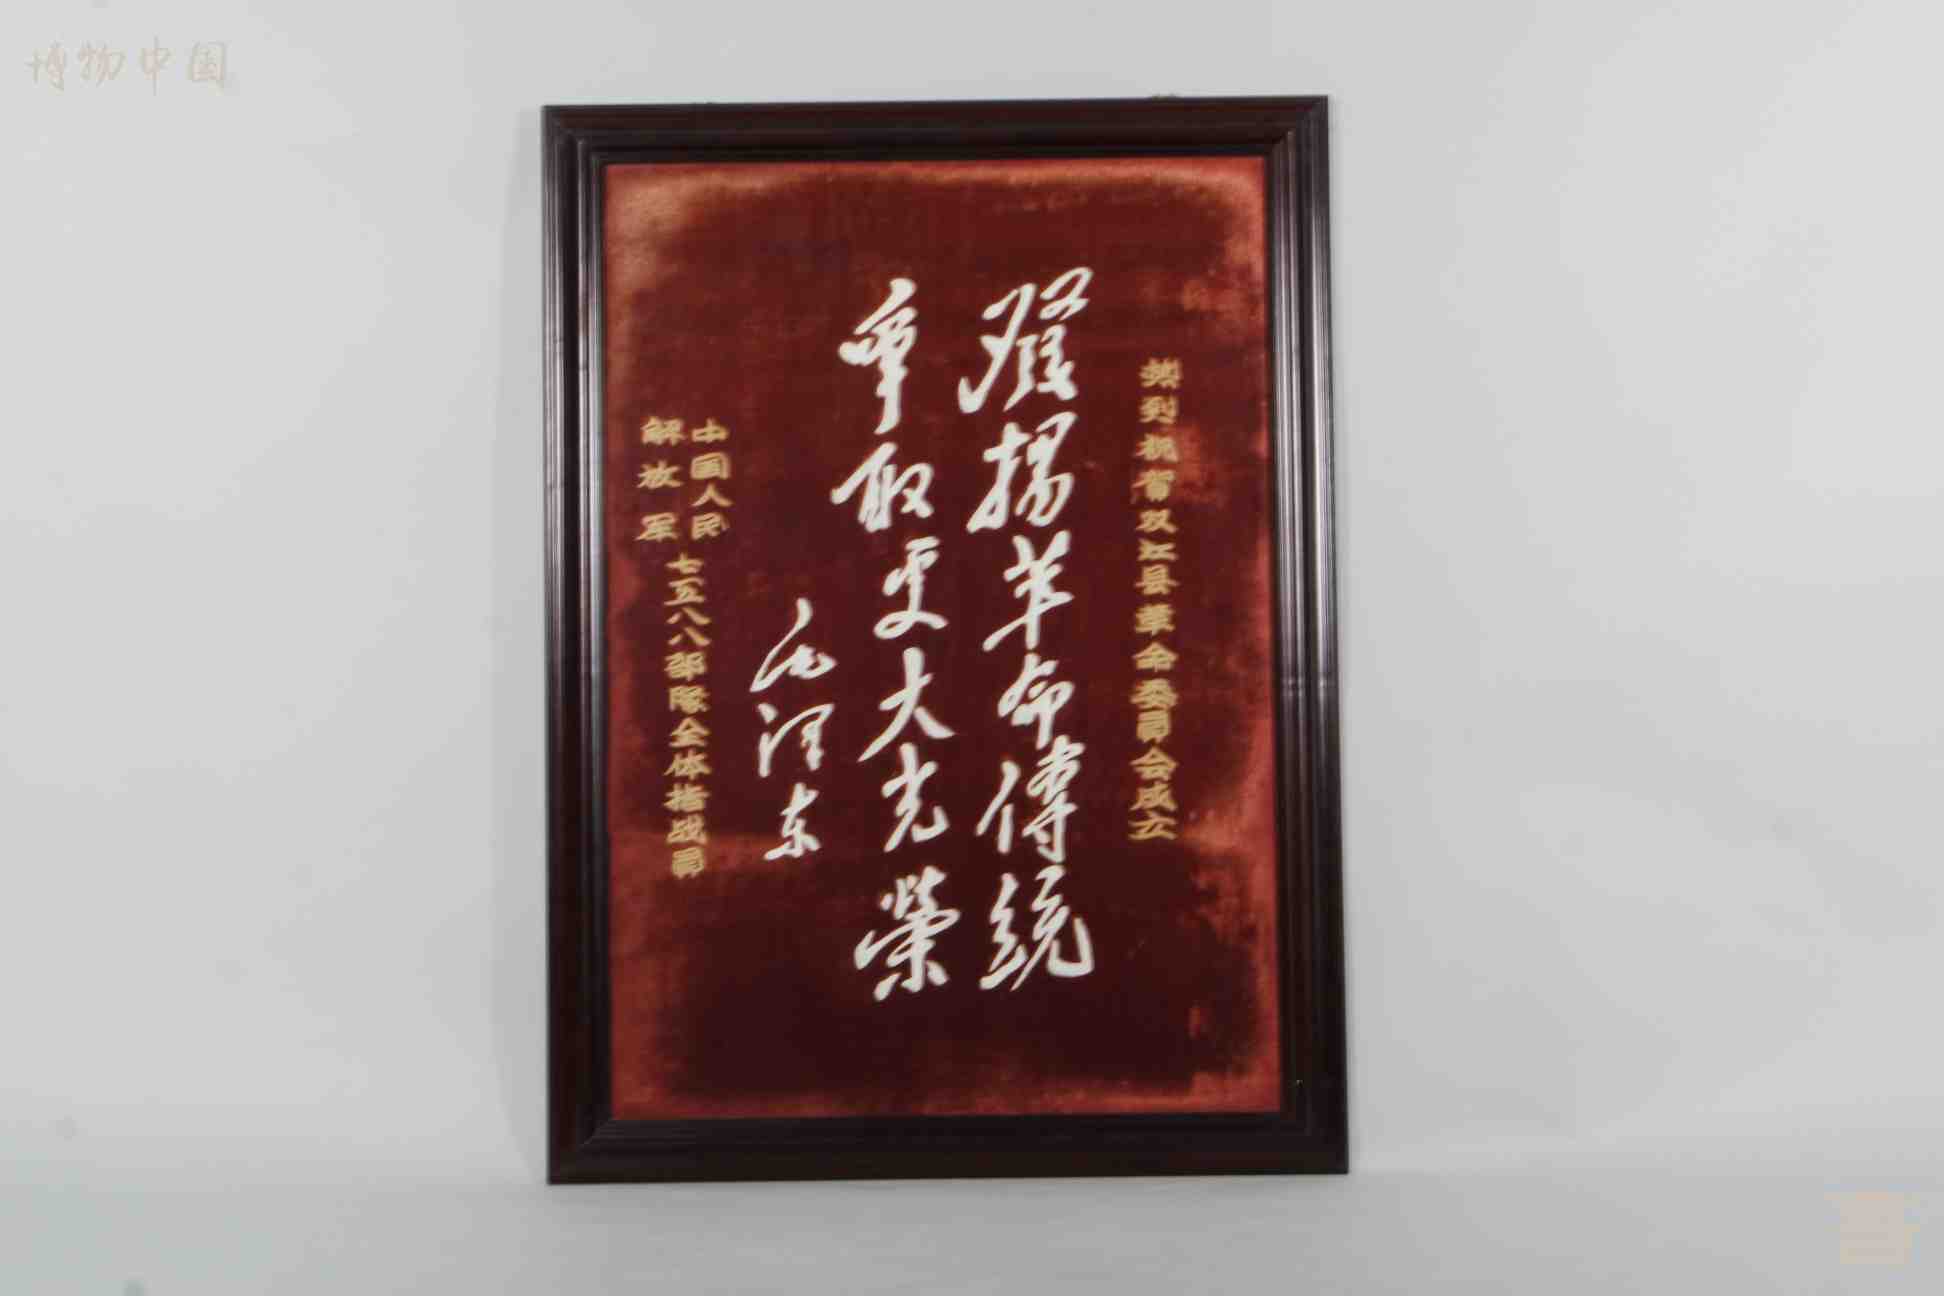 博物中国
热烈祝贺双江县革命委员会成立
發揚革命傳統
爭取更大光榮
毛泽东
中国人民
解放军
七五八八部隊全体指战員